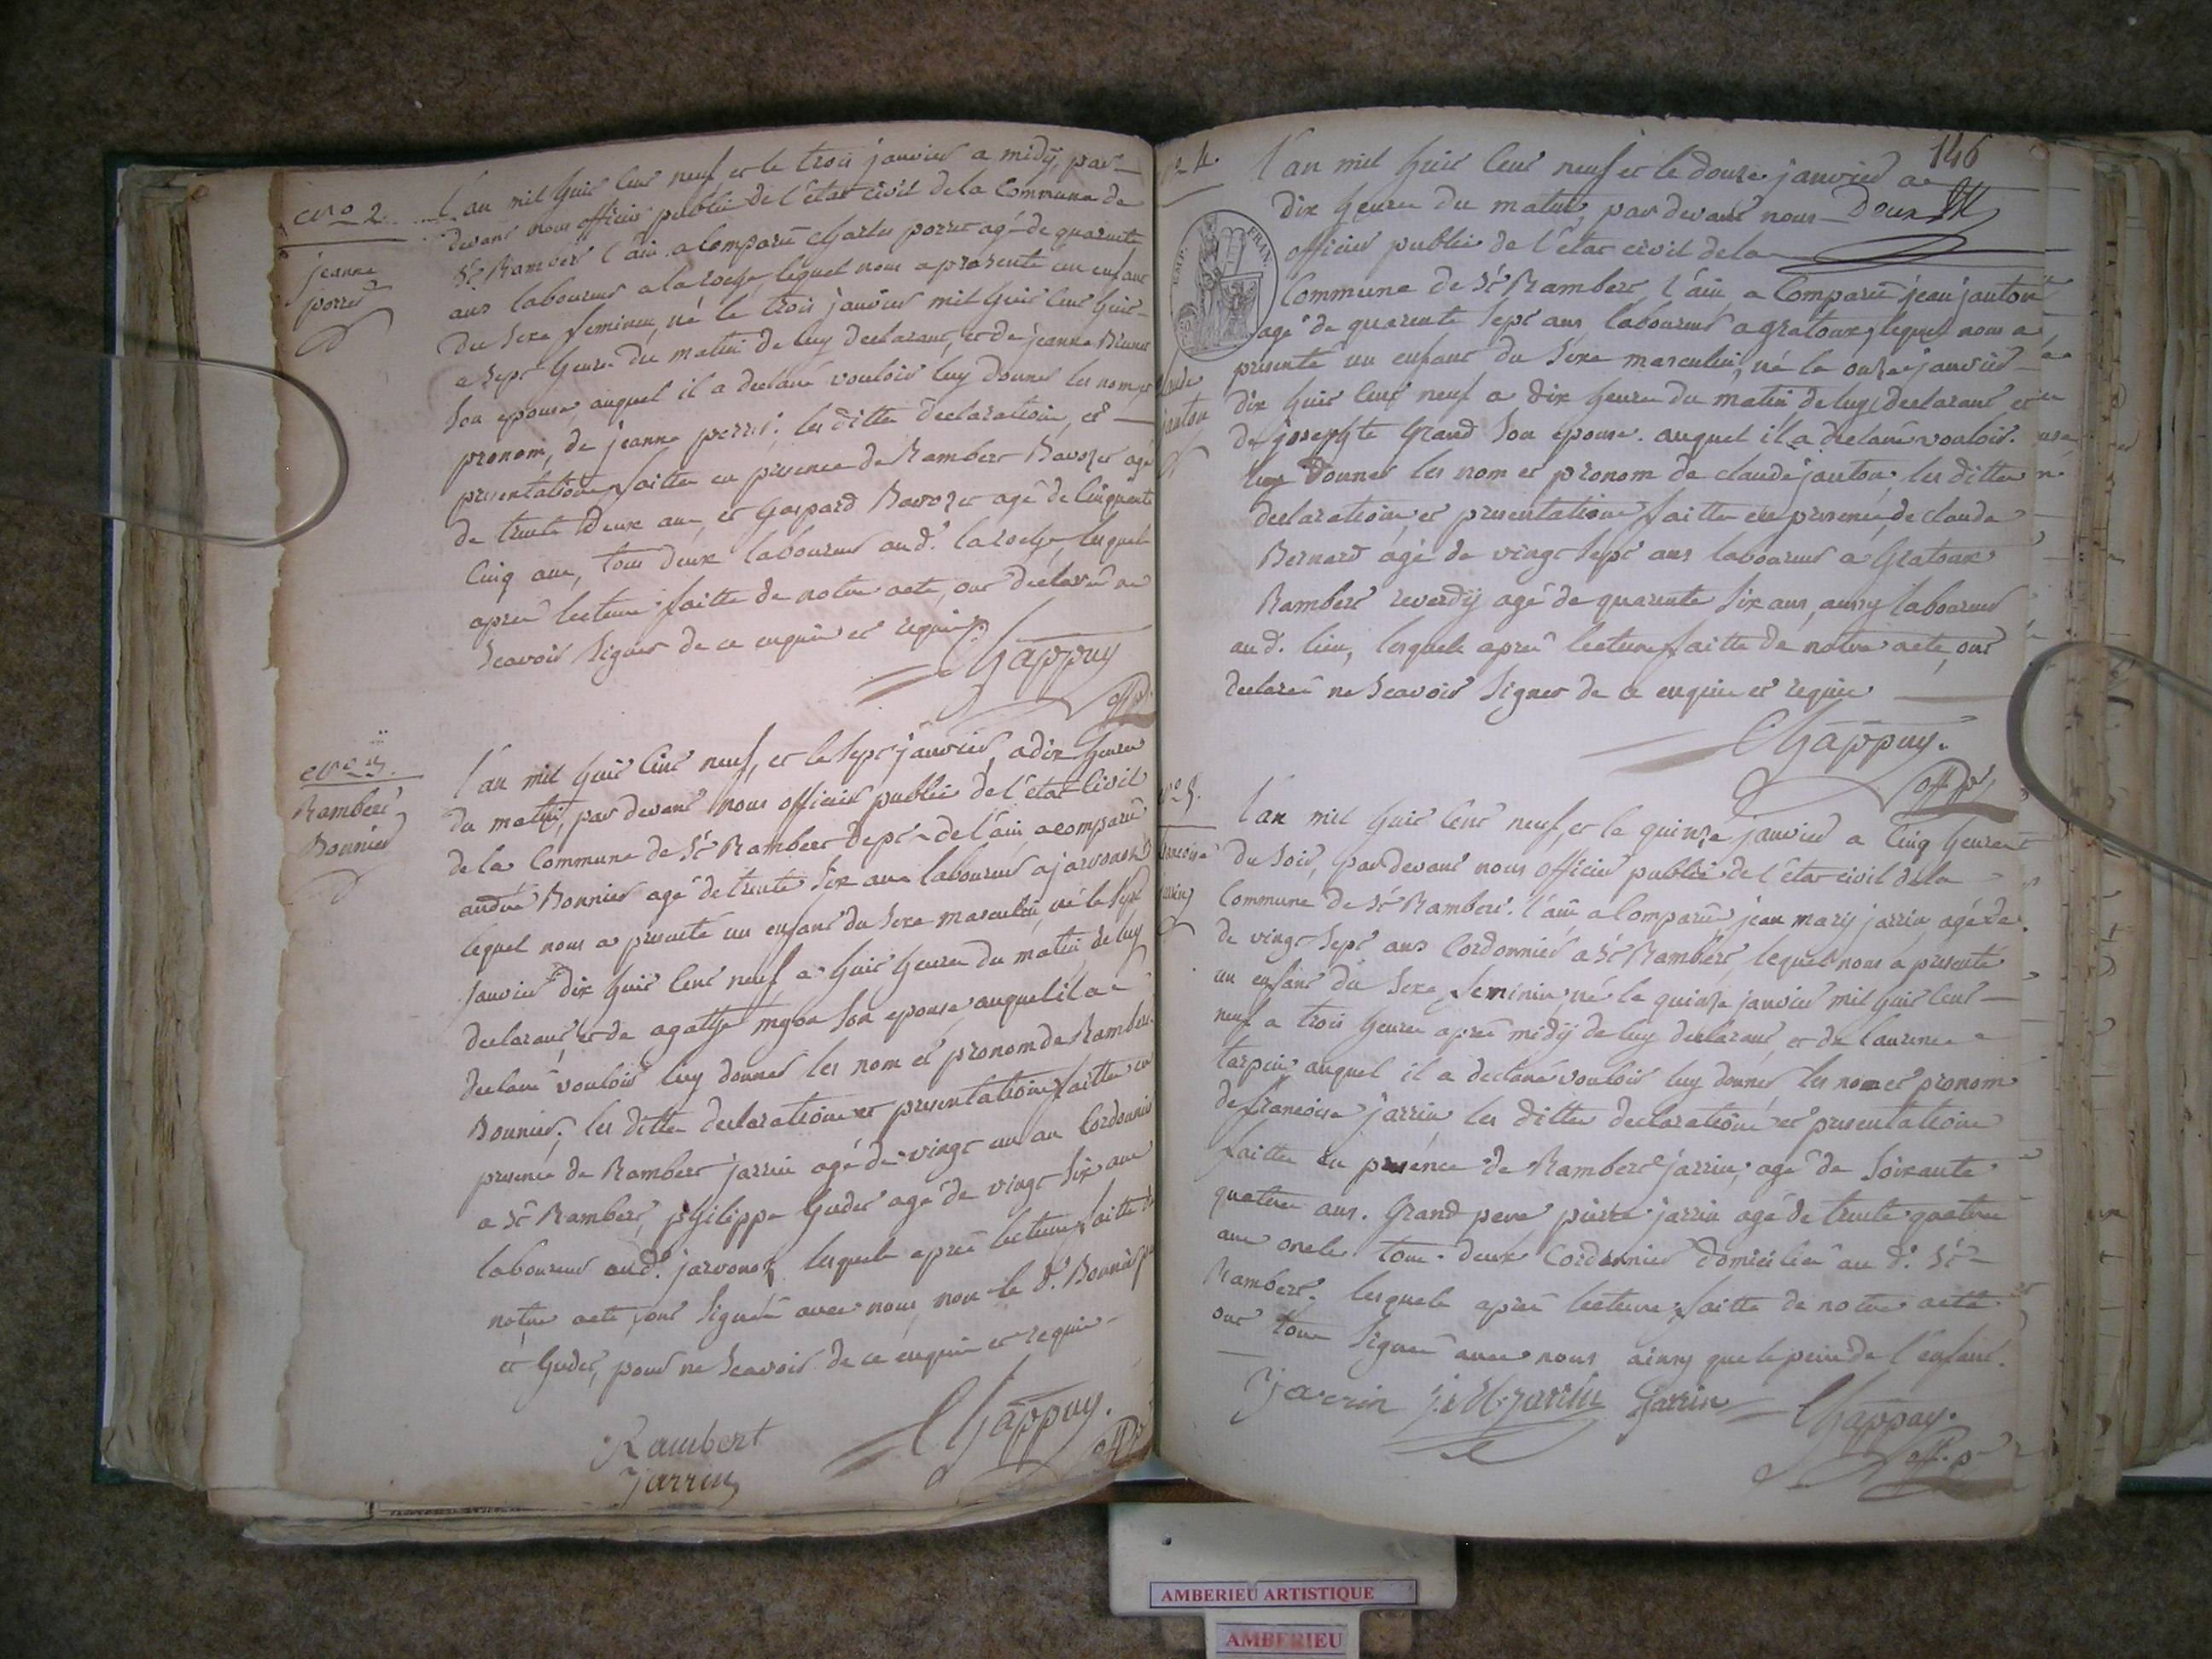 N.o 2.
jeanne
porret
L'an mil huit cent neuf et le trois janvier a midÿ, par
devant nous officier public de l'état civil de la Commune de
St Rambert l'ain a Comparû charles porret agé de quarante
ans laboureur a la roche, lequel nous a presenté un enfant
du sexe feminin, né le trois janvier mil huit cent huit
a sept heures du matin de luy declarant, et de jeanne Brunet
son epouse, auquel il a declaré vouloir luy donner les nom et
pronom, de jeanne porret. les dittes declarations, et
presentations faittes en presence de Rambert Bavozet agé
de trente deux ans, et Gaspard Bavozet agé de Cinquante
Cinq ans, tous deux laboureurs aud. laroche, lesquels
après lecture faitte de notre acte, ont declarés ne
Scavoir signer de ce enquis et requis.
Chappuy
off. p.
N.o 3.
Rambert
Bonnier
L'an mil huit cent neuf, et le sept janvier, a dix heures
du matin, par devant nous officier public de l'état Civil
de la Commune de St Rambert dept de l'ain a comparû
andré Bonnier agé de trente six ans laboureur a jarvonoz
lequel nous a presenté un enfant du sexe masculin, né le sept
janvier dix huit cent neuf a huit heures du matin de luy
declarant et de agathe son epouse, auquel il a
declaré vouloir luy donner les nom et pronom de Rambert
Bonnier, les dittes declarations et presentations faittes en
presence de Rambert jarrin agé de vingt un an Cordonnier
a St Rambert, philippe Gudet agé de vingt six ans
laboureur aud. jarvonoz lesquels après lecture faitte de
notre acte, ont signés avec nous, non le d. Bonnier
et Gudet, pour ne Scavoir de ce enquis et requis
Rambert
Jarrin
Chappuy.
off. p.
146
n.o 4.
EMP. FRAN.
claude
janton
L'an mil huit cent neuf et le douze janvier a
dix heures du matin, par devant nous Deux
officier public de l'état civil de la
Commune de St Rambert l'ain a Comparû jean janton
agé de quarente sept ans laboureur a gratoux, lequel nous a
presenté un enfant du sexe masculin, né le onze janvier
dix huit cent neuf a dix heures du matin de luy declarant et
de josephte Grand son epouse. auquel il a declaré vouloir.
luy donner les nom et pronom de claude janton, les dittes
declarations et presentations faittes en presence, de claude
Bernard agé de vingt sept ans laboureur a Gratoux
Rambert reverdÿ agé de quarente six ans, aussy laboureur
aud. lieu, lesquels après lecture faitte de notre acte, ont
declarés ne Scavoir signer de ce enquis et requis
Chappuy.
off. p.
n.o 5.
francoise
jarrin
L'an mil huit cent neuf, et le quinze janvier a Cinq heures
du soir, par devant nous officier public de l'état civil de la
Commune de St Rambert. l'ain a Comparû, jean mary jarrin agé de
de vingt sept ans Cordonnier a St Rambert, lequel nous a presenté
un enfant du sexe feminin, né le quinze janvier mil huit cent
neuf a trois heures après midÿ de luy declarant et de laurence
tarpin auquel il a declaré vouloir luy donner les nom et pronom
de francoise jarrin les dittes declarations et presentations
faittes en presence de Rambert jarrin, agé de soixante
quatre ans. Grand pere pierre jarrin agé de trente quatre
ans oncle, tous deux Cordonnier domiciliés au d. St
Rambert. lesquels après lecture faitte de notre acte
ont tous signés avec nous ainsy que le pere de l'enfant.
Jarrin j. M. jarrin Jarrin Chappuy.
off. p.
AMBERIEU ARTISTIQUE
AMBERIEU